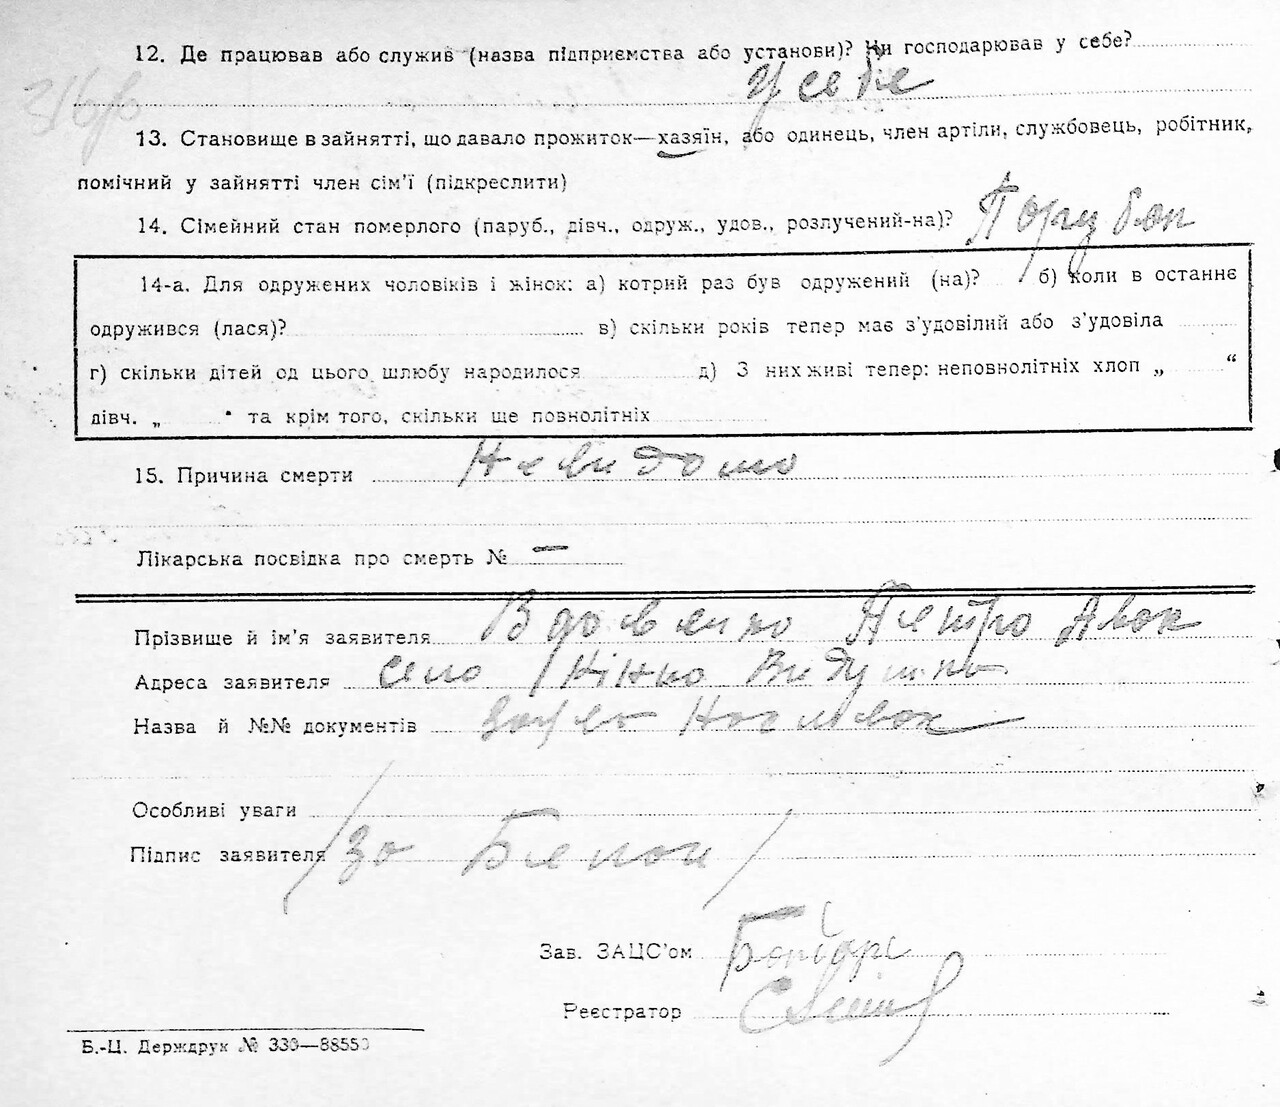 12. Де працював або служив (назва підприємства або установи)? Чи господарював у себе?
У себе
13. Становище в зайнятті, що давало прожиток—хазяїн, або одинець, член артіли, службовець, робітник,
помічний у зайнятті член сім'ї (підкреслити)
14. Сімейний стан померлого (паруб., дівч., одруж., удов., розлучений-на)? Парубок
14-а. Для одружених чоловіків і жінок: а) котрий раз був одружений (на)? б) коли в останнє
одружився (лася)? в) скільки років тепер має з'удовілий або з'удовіла
г) скільки дітей од цього шлюбу народилося д) З них живі тепер: неповнолітніх хлоп „ “
дівч. „ “ та крім того, скільки ще повнолітніх
15. Причина смерти Невидомо
Лікарська посвідка про смерть № —
Прізвище й ім'я заявителя Вдовенко Петро
Адреса заявителя село
Назва й №№ документів
Особливі уваги
Підпис заявителя /За
Зав. ЗАЦС'ом
Реєстратор
Б.-Ц. Держдрук № 330—88550